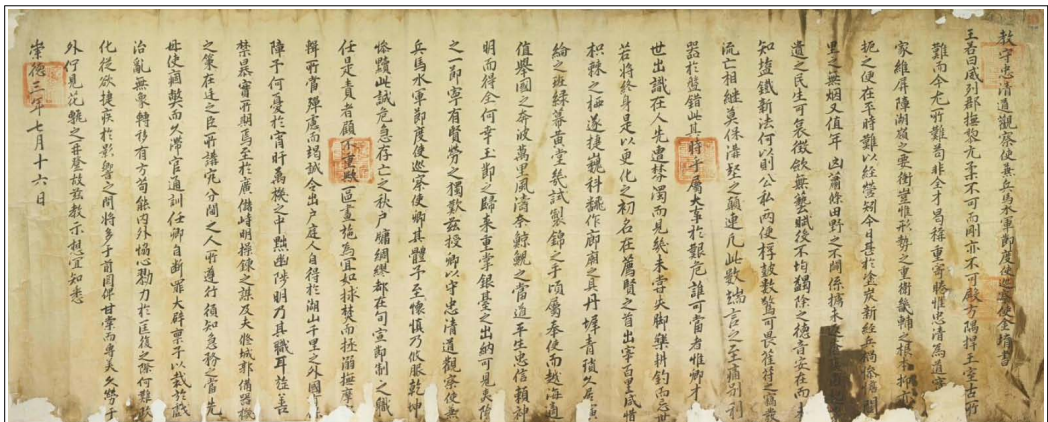 教守忠清道觀察使兼兵馬水軍節度使巡察使金堉書
王若曰咸列郡撫黎元柔不可而剛亦不可殿方隅捍王室古所
難而今尤所難苟非全才曷稱重寄睠惟忠清爲道實
家維屏陣湖嶺之要衝豈惟形勢之重衛畿輔之根本抑亦
扼之便在平時難以經營矧今日甚於塗炭新經兵禍傷閭
里之無烟又值年凶蕭條田野之不闢係擄未
遺之民生可哀徵斂無藝賦役不均蠲除之德音安在而
知塩鐵新法何以則公私兩便桴鼓數驚可畏萑苻之竊發
流亡相繼莫保溝壑之顛連凡此數端言之至痛別利
器於盤錯此其時乎屬大事於艱危誰可當者惟卿才
世出識在人先遭棼濁而見幾未嘗失脚樂耕釣而忘世
若將終身是以更化之初名在薦賢之首出宰百里咸惜
枳棘之栖遂捷巍科飜作廊廟之具丹墀青瑣久居演
綸之班綠幕黃堂幾試製錦之手頃屬奉使而越海適
值舉國之奔波萬里風濤奈鯨鯢之當道平生忠信賴神
明而得全何幸玉節之歸來重掌銀臺之出納可見夷險
之一節寧有賢勞之獨歎玆授卿以守忠清道觀察使兼
兵馬水軍節度使巡察使卿其體予至懷愼乃攸服乾坤
慘黷此誠危急存亡之秋戶牖綢繆都在旬宣節制之職
任是責者顧不重歟區畫施爲宜如捄焚而拯溺撫摩
輯所當殫慮而竭誠令出戶庭人自得於湖山千里之外國有保
障予何憂於宵旰萬機之中黜幽陟明乃其職耳詰姦
禁暴實所期焉至於廣儲峙明操鍊之謀及夫修城郭備器械
之策在廷之臣所講究分閫之人所遵行須知急務之當先
毋使痼弊而久滯官通訓任卿自斷罪大辟稟予以裁於戲
治亂無象轉移有方苟能內外協心勠力於匡復之際何難敎
化從欲捷疾於影響之間將多于前圖保甘棠而專美久勞于
外佇見花甎之再登故玆教示想宜知悉
崇德三年七月十六日